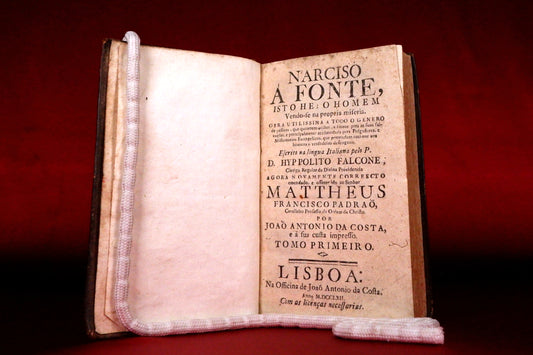 NARCISO
A FONTE,
ISTO HE: O HOMEM
Vendo-se na propria miseria.
OBRA UTILISSIMA A TODO O GENERO
de pessoas, que
e principalmente
Missionarios Evangelicos, que
Escrito na lingua Italiana pelo P.
D. HYPPOLITO FALCONE,
Clerigo Regular da Divina Providencia
AGORA NOVAMENTE CORRECTO
emendado, e offerecido ao Senhor
MATTHEUS
FRANCISCO PADRAÕ,
Cavalleiro Professo da Ordem de Christo.
POR
JOAÕ ANTONIO DA COSTA,
e á sua custa impresso.
TOMO PRIMEIRO.
LISBOA:
Na Officina de Joaõ Antonio da Costa.
Anno M.DCC.LXII.
Com as licenças necessarias.